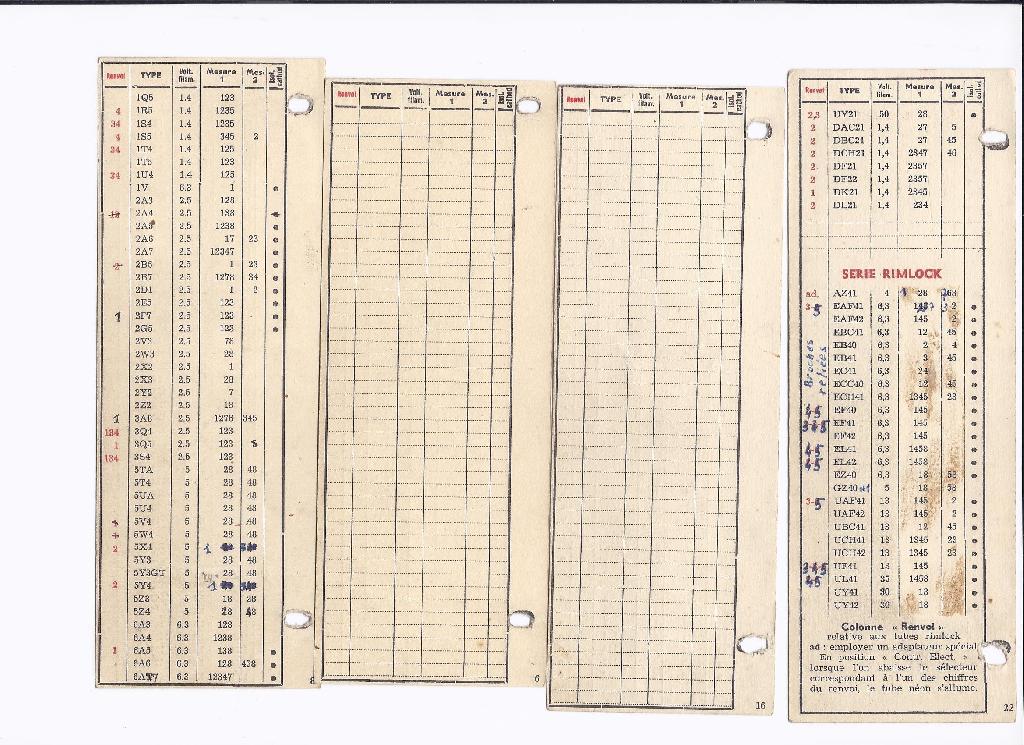 Renvoi TYPE Volt. filam. Mesure 1 Mes. 2 Isol. cathod
1Q5 1.4 123
4 1R5 1.4 1235
34 1S4 1.4 1235
4 1S5 1.4 345 2
34 1T4 1.4 125
1T5 1.4 123
34 1U4 1.4 125
1V 6.3 1
2A3 2.5 128
2A4 2.5
2A5 2.5 1238
2A6 2.5 17 23
2A7 2.5 12347
2B6 2.5 1 23
2B7 2.5 1278 34
2D1 2.5 1 2
2E5 2.5 123
1 2F7 2.5 123
2G5 2.5 123
2V3 2.5 78
2W3 2.5 28
2X2 2.5 1
2X3 2.5 28
2Y2 2.5 7
2Z2 2.5 18
1 3A8 2.5 1278 345
134 3Q4 2.5 123
1 3Q5 2.5 123
134 3S4 2.5 123
5TA 5 28 48
5T4 5 28 48
5UA 5 28 48
5U4 5 28 48
5V4 5 28 48
5W4 5 28 48
2 5X4 5 1
5Y3 5 28 48
5Y3GT 5 28 48
2 5Y4 5 1
5Z3 5 18 28
5Z4 5 28 48
6A3 6.3 128
6A4 6.3 1238
1 6A5 6.3 138
6A6 6.3 128 438
6AT7 6.3 12347
Renvoi TYPE Volt. filam. Mesure 1 Mes. 2 Isol. cathod
6
Renvoi TYPE Volt. filam. Mesure 1 Mes. 2 Isol. cathod
16
Renvoi TYPE Volt. filam. Mesure 1 Mes. 2 Isol. cathod
2,3 UY21 50 28
2 DAC21 1,4 27 5
2 DBC21 1,4 27 45
2 DCH21 1,4 2847 46
2 DF21 1,4 2357
2 DF22 1,4 2357
1 DK21 1,4 2345
2 DL21 1,4 234
SERIE RIMLOCK
ad. AZ41 4 1 28
5 EAF41 6,3 2
EAF42 6,3 145 2
EBC41 6,3 12 45
EB40 6,3 2 4
EB41 6,3 3 45
EC41 6,3 24
ECC40 6,3 12 45
ECH41 6,3 1345 23
45 EF40 6,3 145
345 EF41 6,3 145
EF42 6,3 145
45 EL41 6,3 1458
45 EL42 6,3 1458
EZ40 6,3 18 58
GZ40 5 18 58
5 UAF41 13 145 2
UAF42 13 145 2
UBC41 13 12 45
UCH41 13 1345 23
UCH42 13 1345 23
345 UF41 13 145
45 UL41 35 1458
UY41 30 18
UY42 30 18
Broches reliées
Colonne « Renvoi »
relative aux tubes rimlock
ad : employer un adaptateur spécial
En position « Contr. Elect. »
lorsque l'on abaisse le sélecteur
correspondant à l'un des chiffres
du renvoi, le tube néon s'allume.
22